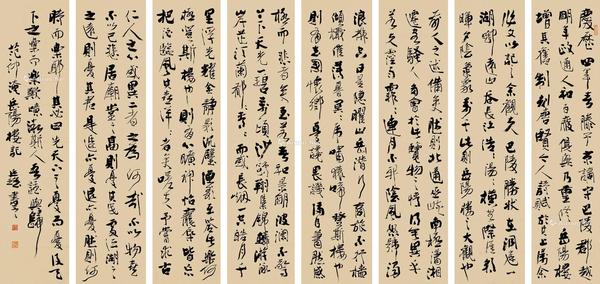 慶曆四年春滕子京謫守巴陵郡越
明年政通人和百廢具興乃重修岳陽樓
增其舊制刻唐賢今人詩賦於其上屬余
作文以記之余觀夫巴陵勝狀在洞庭一
湖銜遠山吞長江浩浩湯湯橫無際涯朝
暉夕陰氣象萬千此則岳陽樓之大觀也
前人之述備矣然則北通巫峽南極瀟湘
遷客騷人多會於此覽物之情得無異乎
若夫霪雨霏霏連月不開陰風怒號濁
浪排空日星隱曜山岳潛形商旅不行檣
傾楫摧薄暮冥冥虎嘯猿啼登斯樓也
則有去國懷鄉憂讒畏譏滿目蕭然感
極而悲者矣至若春和景明波瀾不驚
上下天光一碧萬頃沙鷗翔集錦鱗游泳
岸芷汀蘭郁郁青青而或長煙一空皓月千
里浮光躍金靜影沉璧漁歌互答此樂何
極登斯樓也則有心曠神怡寵辱皆忘
把酒臨風其喜洋洋者矣嗟夫予嘗求古
仁人之心或異二者之為何哉不以物喜
不以己悲居廟堂之高則憂其民處江湖
之遠則憂其君是進亦憂退亦憂然則何
時而樂耶其必曰先天下之憂而憂後天
下之樂而樂歟噫微斯人吾誰與歸
范仲淹岳陽樓記